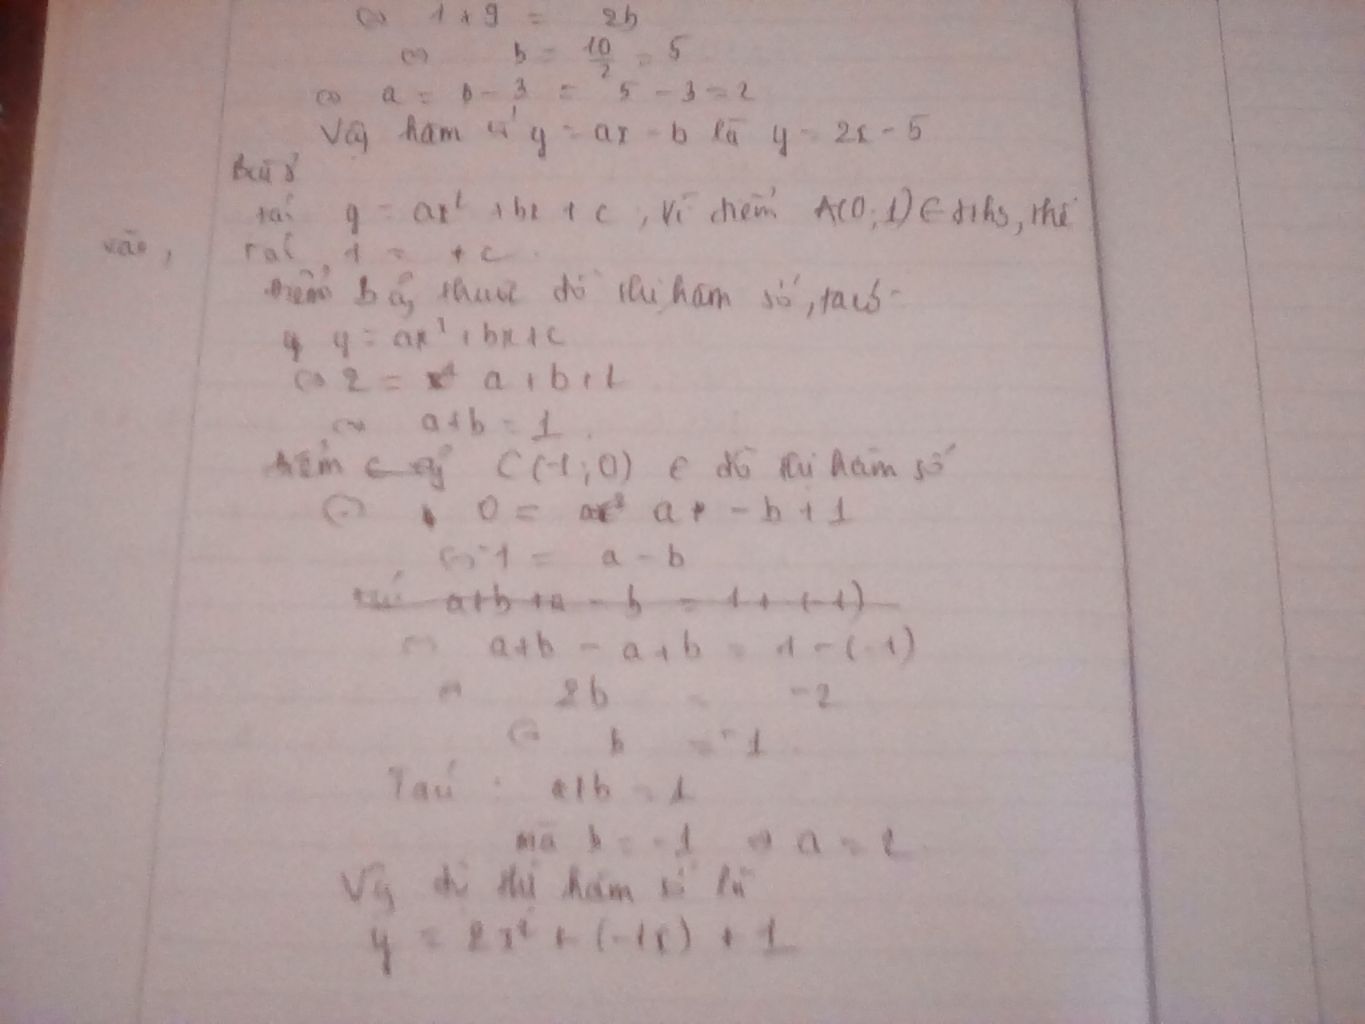 ⇔ 1 + 9 = 2b
⇔ b = 10/2 = 5
⇔ a = b - 3 = 5 - 3 = 2
Vậy hàm số y = ax - b là y = 2x - 5
Bài
y = ax² + bx + c, vì điểm A(0;1) ∈ đths, thế
vào, ta có 1 = + c.
điểm B thuộc đồ thị hàm số, ta có
y = ax² + bx + c
⇔ 2 = a + b + 1
⇔ a + b = 1.
điểm C(-1;0) ∈ đồ thị hàm số
⇔ 0 = a - b + 1
⇔ -1 = a - b
a + b + a - b = 1 + (-1)
⇔ a + b - a + b = 1 - (-1)
⇔ 2b = -2
⇔ b = -1
Ta có : a + b = 1
mà b = -1 ⇒ a = 2
Vậy đồ thị hàm số là
y = 2x² + (-1x) + 1